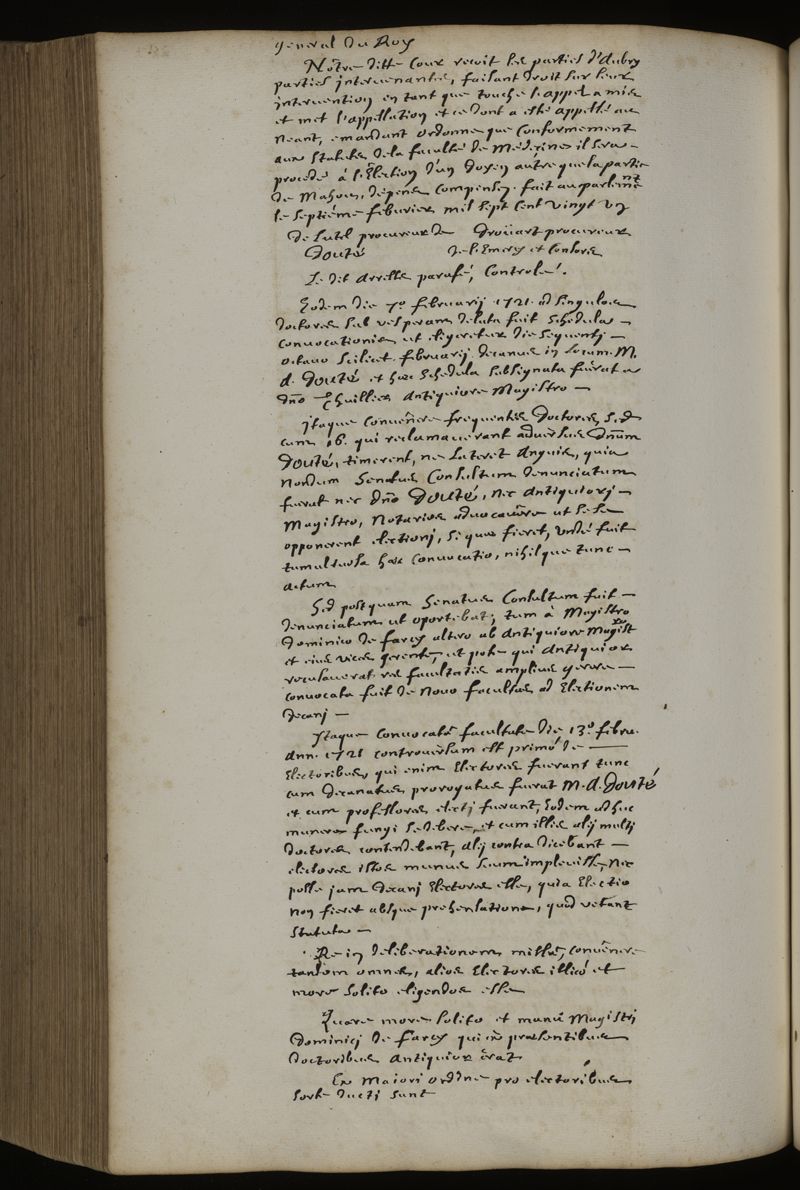 general du Roy
Nôtre ditte Cour reçoit les parties d'Aubry
parties intervenantes, faisant droit sur leur
intervention en tant que touche l'appel a mis
et met l'appellation et ce dont a esté appellé au
neant, emandant ordonne que conformement
aux Statuts de la faculté de Medecine il sera
procedé à l'Election d'un Doyen autre que la partie
de Mahou, dépens compensez. fait au parlemēnt
le septiéme feburier mil sept cent vingt un
De Lutel procureur de Droüart procureur
Douté de l'Emery et Consors
Le dit Arrest parafé, Controlé.
Eodem die 7º februarij 1721. ad singulos
doctores sub vesperam delata fuit schedula
convocationis ut eligeretur die sequenti
octavo scilicet februarij decanus in locum M.
d. Douté et hæc schedula subsignata fuerat a
dño Lhuillier antiquiore Magistro
Itaque convenêre frequentes doctores, sed
cum 16. qui reclamaverant adversus dnum
Douté, timerent, ne lateret anguis, quia
nondum Senatus Consultum denunciatum
fuerat nec dño Douté, nec antiquiori
Magistro, Notarios advocavêre ut sese
opponerent electioni, si quæ fieret, undé fuit
tumultuosa hæc convocatio, nihilque tunc
actum
Sed postquam Senatus Consultum fuit
denunciatum ut oportebat, tum à Magistro
Dominico de farcy altero ab antiquiore Magistro
et eius vices gerente, ut pote qui antiquior
recusaverat res facultatis amplius gerere
convocata fuit de novo facultas ad Electionem
decani
Itaque convocatâ facultate die 13º febru.
ann. 1721 controversum est primó de
Electoribus, qui enim Electores fuerant tunc
cum decanatus prorogatus fuerat M. d. Douté
et cum professores electi fuerant, eodem adhuc
munere fungi se debere, et cum illis alij multi
doctores contendebant, alij contra dicebant
electores istos munus suum implevisse, nec
posse jam decani Electores esse, quia Electio
non fieret absque prehensatione, quod vetant
statuta
Re in deliberationem missa, convenêre
tandem omnes, alios Electores illicó et
more solito eligendos esse
Quare more solito et manu Magistri
Dominici de farcy qui in præsentibus
doctoribus antiquior erat
Ex Maiori ordine pro electoribus
sorte ducti sunt